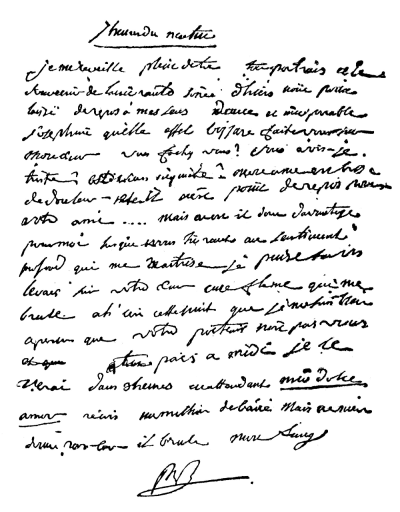 7 heures du matin
je me reveille plein de toi ton portrait et le
souvenir de l'enivrante soiré d'hiers n'ont point
laissé de repos à mes sens douce et incomparable
josephine quelle effet bizzare faite vous sur
mon cœur vous fachez vous? vous vois-je
triste? etes vous inquiete? mon ame est
de douleur et il n'est point de repos pour
votre ami .... mais en est il donc davantage
pour moi lorsque vous livrant au sentiment
profond qui me maitrise je puise sur vos
levres sur votre cœur une flame qui me
brule ah c'est cette nuit que je me suis bien
apercu que votre portrait n'est pas vous
pars a midi je te
verai dans 3 heures en attendant mio dolce
amor recois un millier de baisé mais ne m'en
donne pas car il brule mon sang